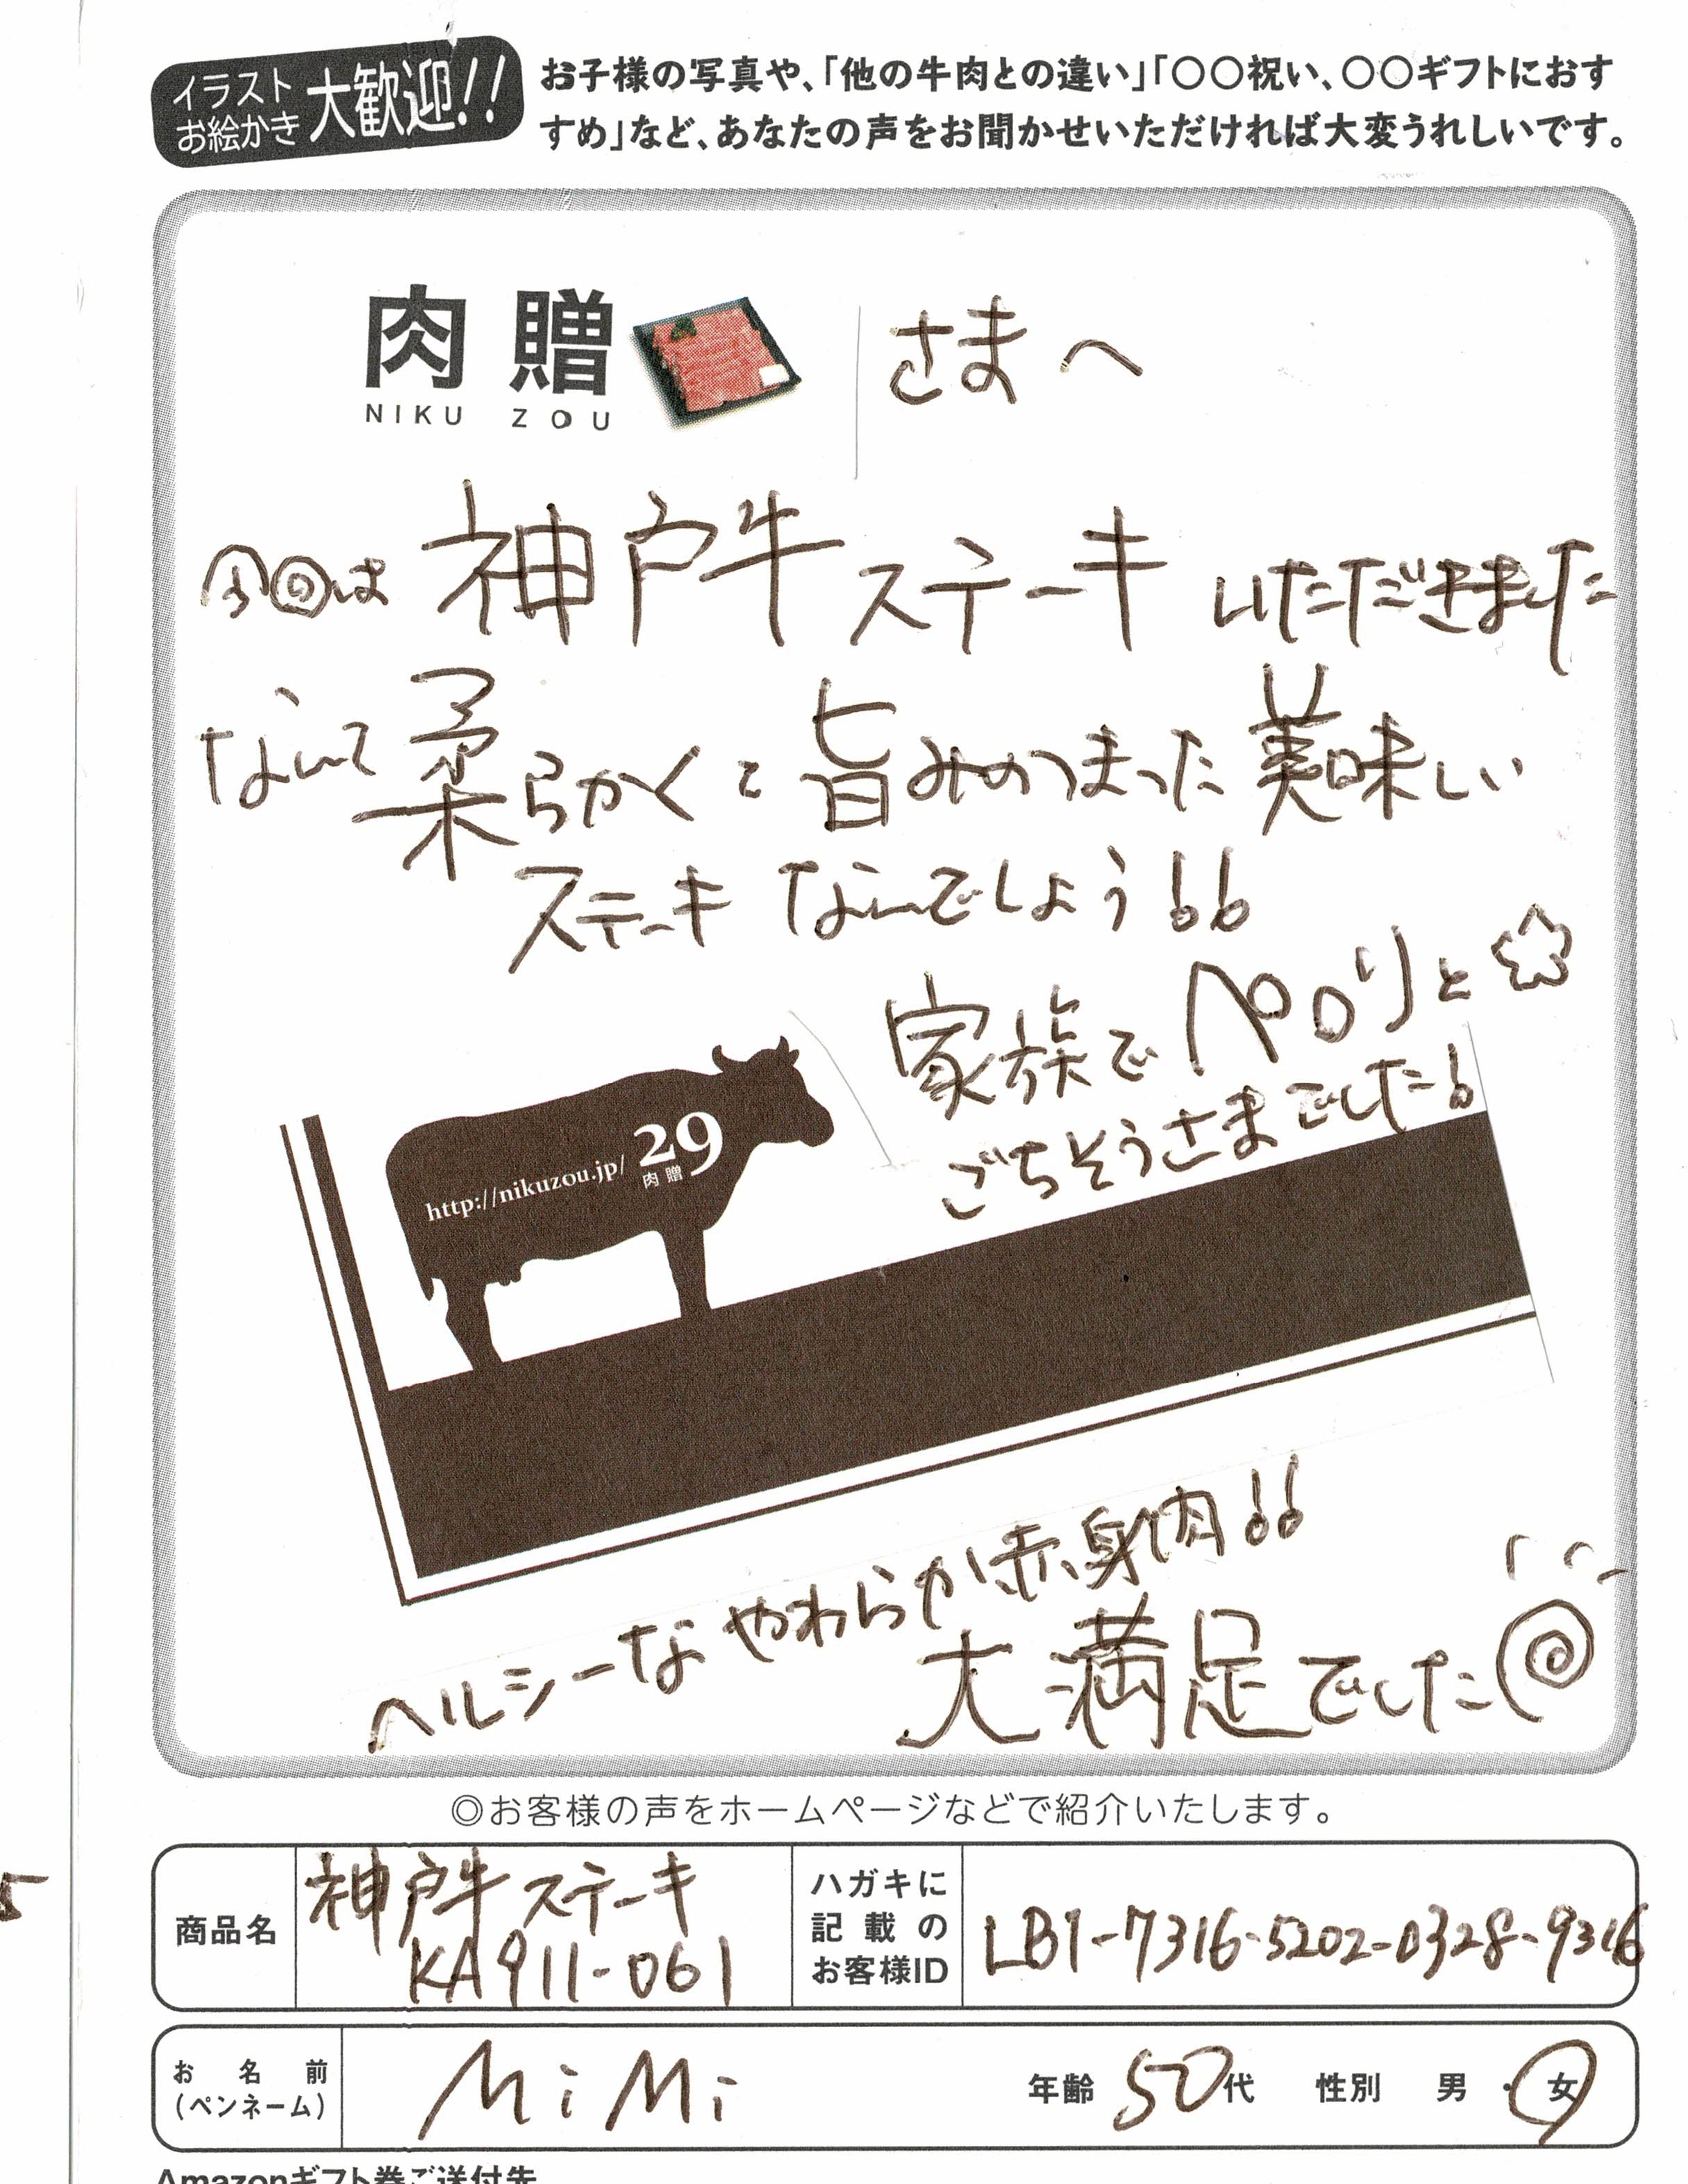 イラスト
お絵かき
大歓迎!!
お子様の写真や、「他の牛肉との違い」「〇〇祝い、〇〇ギフトにおす
すめ」など、あなたの声をお聞かせいただければ大変うれしいです。
肉贈 さまへ
NIKU ZOU
今回は 神戸牛 ステーキ いただきました
なんて柔らかくて旨みのつまった美味しい
ステーキ なんでしょう!!
家族で ペロリと
ごちそうさまでした!
http://nikuzou.jp/ 29
肉贈
ヘルシーなやわらか赤身肉!!
大満足でした
◎お客様の声をホームページなどで紹介いたします。
商品名
神戸牛 ステーキ
KA911-061
ハガキに
記載の
お客様ID
LB1-7316-5202-0328-9316
お名前
(ペンネーム)
MiMi
年齢 50代 性別 男・女
Amazonギフト券ご送付先